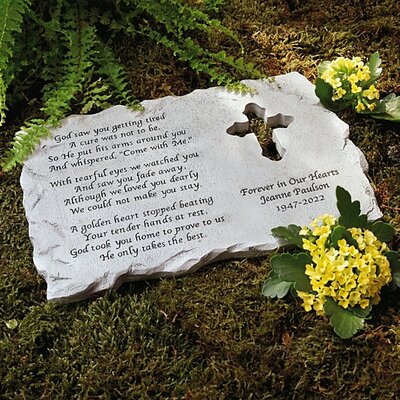 God saw you getting tired
A cure was not to be,
So He put his arms around you
And whispered, "Come with Me."
With tearful eyes we watched you
And saw you fade away,
Although we loved you dearly
We could not make you stay.
A golden heart stopped beating
Your tender hands at rest.
God took you home to prove to us
He only takes the best.
Forever in Our Hearts
Jeanne Paulson
1947-2022